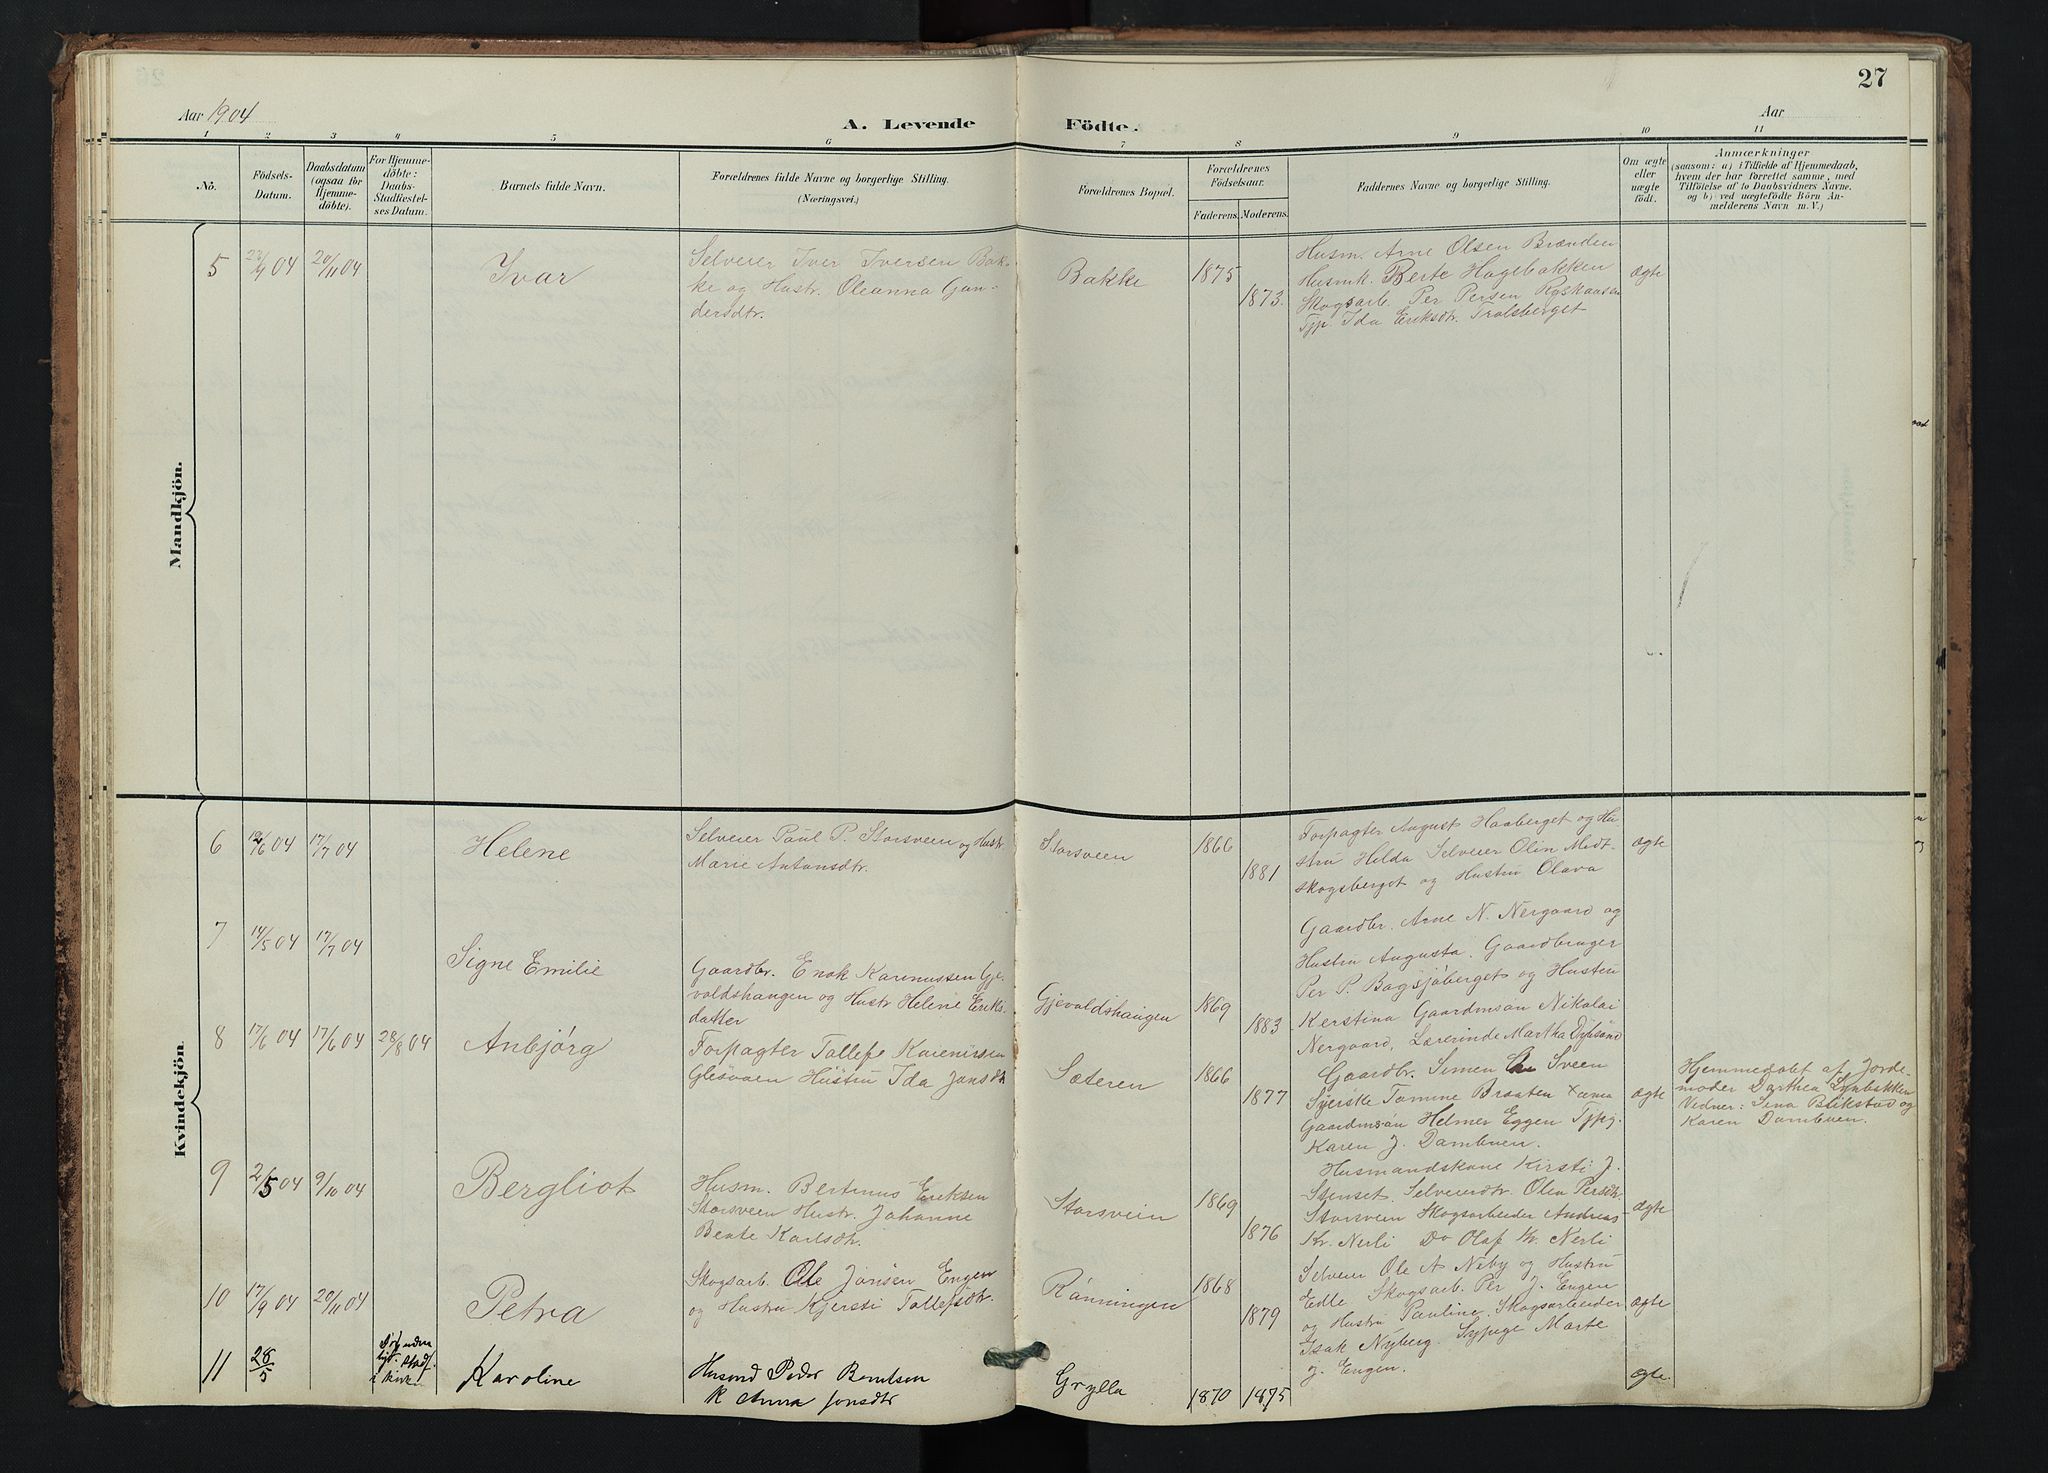 27
Aar 1904
A. Levende Födte.
Aar
1 2 3 4 5 6 7 8 9 10 11
No.
Födsels-
Datum.
Daabsdatum
(ogsaa for
Hjemme-
döbte).
For Hjemme-
döbte:
Daabs-
Stadfæstel-
ses Datum.
Barnets fulde Navn.
Forældrenes fulde Navne og borgerlige Stilling.
(Næringsvei.)
Forældrenes Bopæl.
Forældrenes
Födselsaar.
Faderens. Moderens.
Faddernes Navne og borgerlige Stilling.
Om ægte
eller
uægte
födt.
Anmærkninger
(saasom: a) i Tilfælde af Hjemmedaab,
hvem der har forrettet samme, med
Tilföielse af to Daabsvidners Navne,
og b) ved uægtefödte Börn An-
melderens Navn m. V.)
Mandkjön.
5 04 20/11 04 Ivar
Selveier Iver Iversen Bak-
ke og Hustr. Oleanna Gun-
dersdtr.
Bakke 1875 1873.
Husm. Arne Olsen Brænden
Husmk. Berte Hagebakken
Skogsarb. Per Persen
Tjp. Ida Eriksdtr. Trolsberget
ægte
Kvindekjön.
6 04 17/7 04 Helene
Selveier Paul P. Storsveen og Hustr.
Marie Antonsdtr.
Storsveen 1866 1881
Forpagter August Haaberget og Hu-
stru Hilda Selveier Olin Midt-
skogsberget og Hustru Olava
ægte
7 14/5 04 17/7 04 Signe Emilie
Gaardbr. Enok Gje-
voldshaugen og Hustr Helene Eriks
datter
Gjevoldshaugen 1869 1883
Gaardbr. Arne N. Nergaard og
Hustru Augusta. Gaardbruger
Per P. Bagsjøberget og Hustru
Kerstina Gaardmsøn Nikolai
Nergaard, Lærerinde Martha
8 17/6 04 17/6 04 28/8 04 Anbjørg
Forpagter Tollef
Hustru Ida Jansdtr
Sæteren 1866 1877
Gaardbr. Simen Sveen
Tomine Braaten
Gaardmsøn Helmer Eggen Tjpg.
Karen J. Dambuen.
ægte
Hjemmedøbt af Jorde-
moder Dorthea
Vidner: Sina Blikstad og
Karen Dambuen.
9 2/5 04 9/10 04 Bergliot
Husm. Bertinus Eriksen
Storsveen Hustr. Johanne
Beate Karlsdtr.
Storsvein 1869 1876
Husmandskone Kirsti J.
Stenset. Selveierdtr. Olea Persdtr.
Storsveen Skogsarbeider Andreas
Kr. Nerli Do Olaf Kr. Nerli
ægte
10 17/9 04 20/11 04 Petra
Skogsarb. Ole Jonsen Engen
og Hustru Kjersti Tollefsdtr.
Rønningen 1868 1879
Selveier Ole A Neby og Hustru
Edle Skogsarb. Per J. Engen
og Hustru Pauline. Skogsarbeider
Isak Nyberg. Sypige Marte
J. Engen.
ægte
11 28/5 Karoline
Husmd Peder Berntsen
K Anna Jonsdtr
Grylla 1870 1875
ægte.